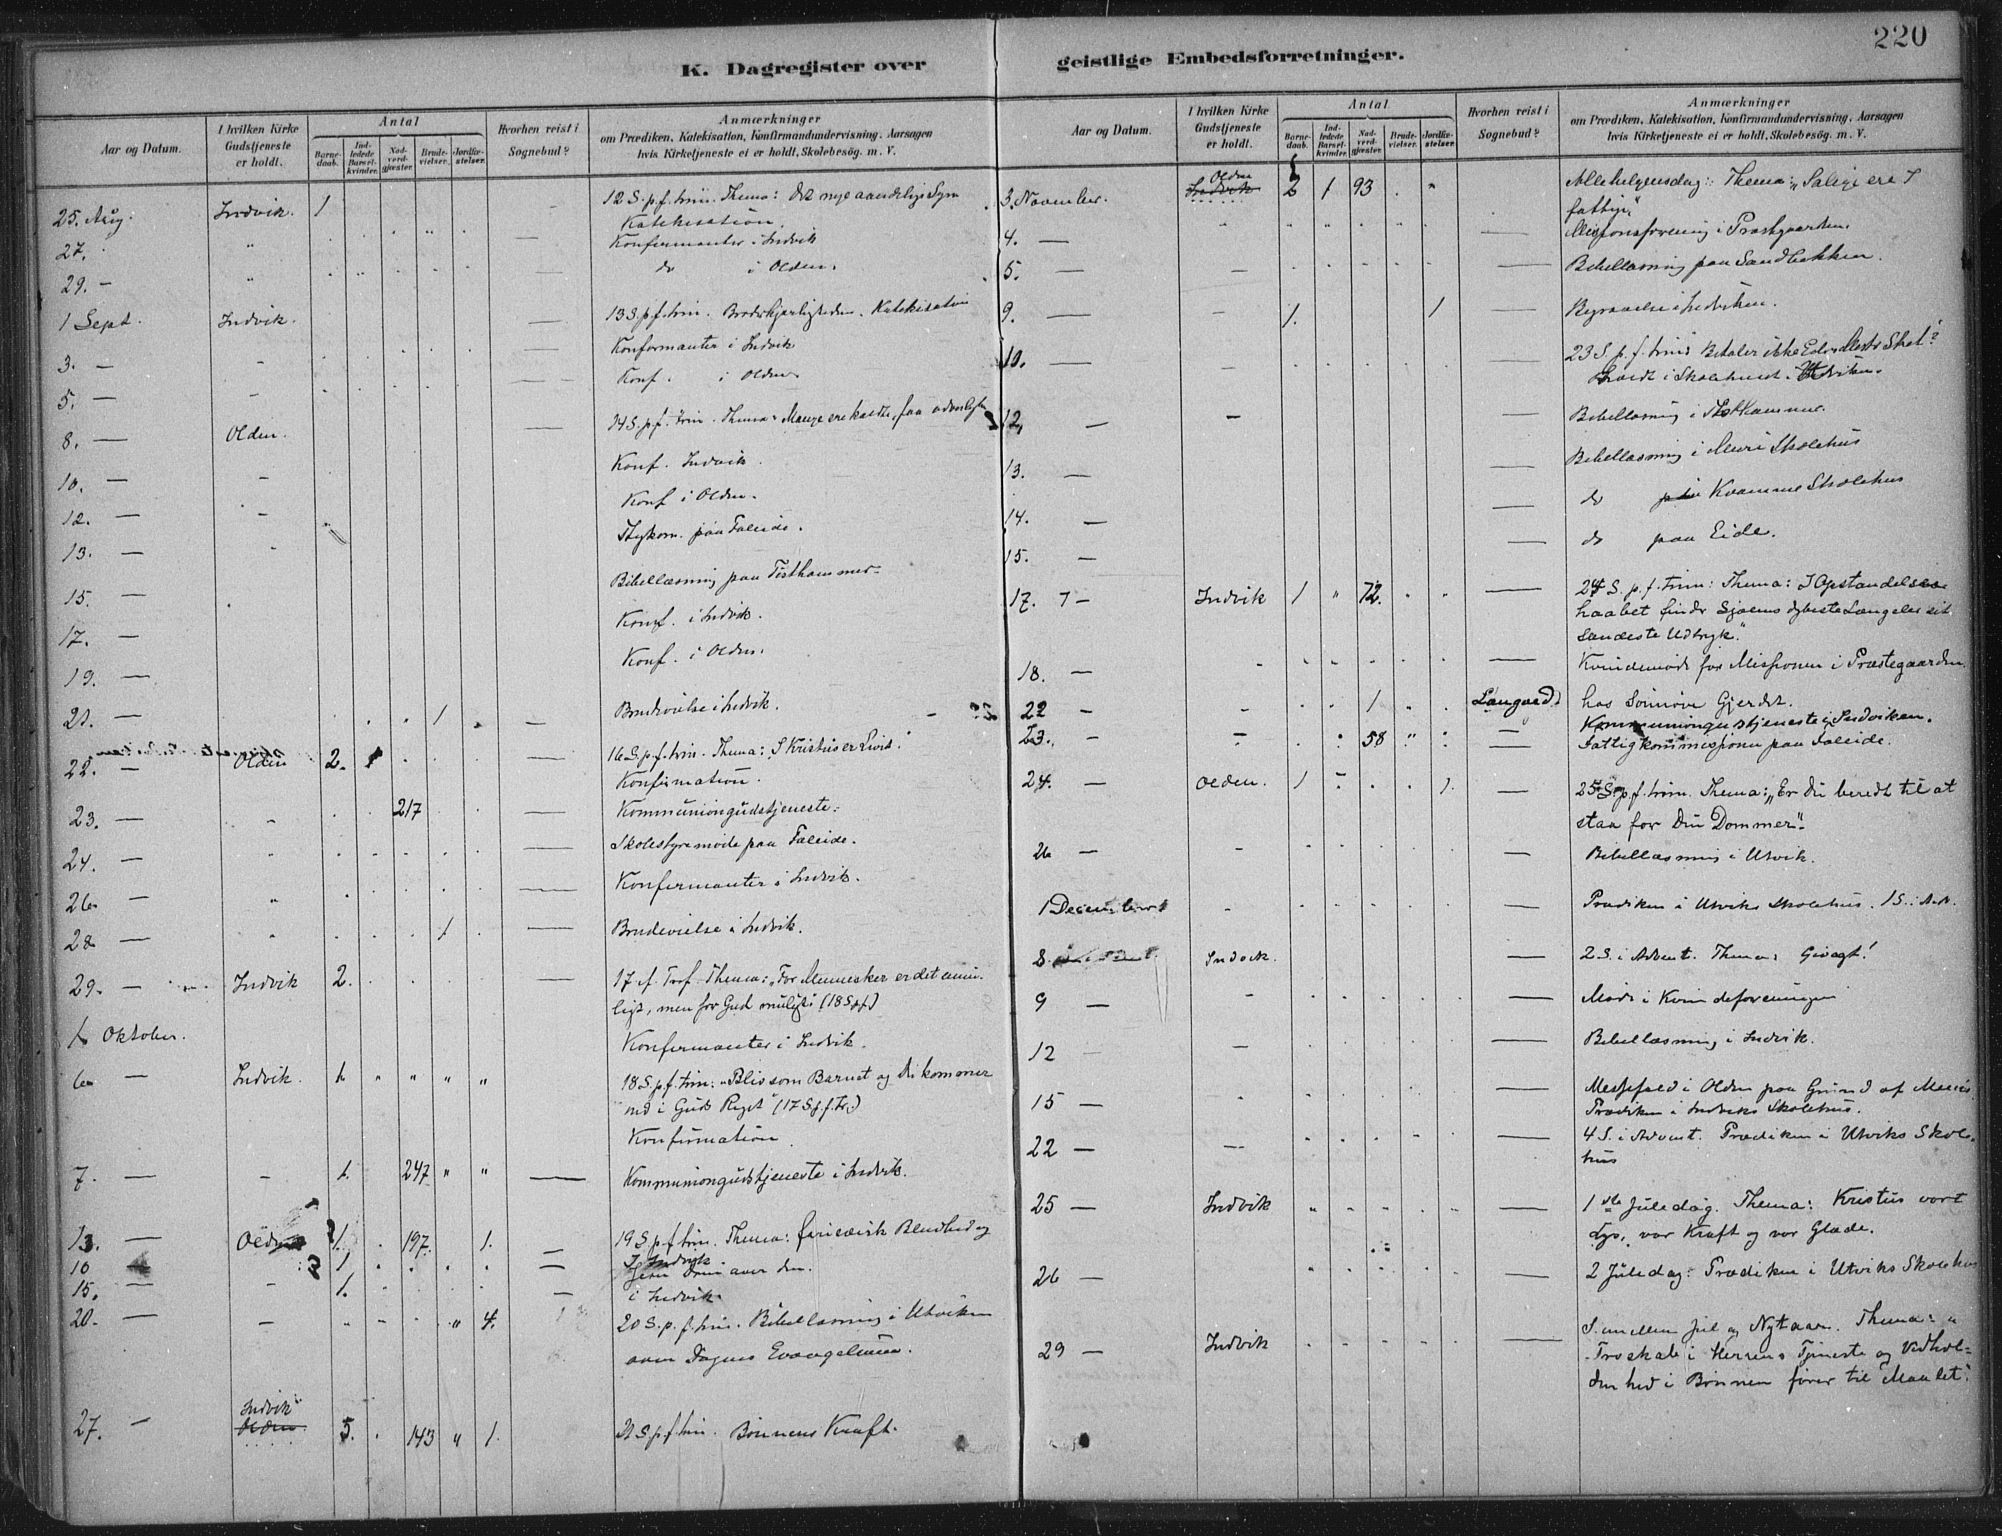 220
K. Dagregister over geistlige Embedsforretninger.
Aar og Datum.
I hvilken Kirke Gudstjeneste er holdt.
Antal
Barnedaab.
Indledede Barselkvinder.
Nadverdgjæster.
Brudevielser.
Jordfæstelser.
Hvorhen reist i Sognebud?
Anmærkninger
om Prædiken, Katekisation, Konfirmandundervisning, Aarsagen
hvis Kirketjeneste ei er holdt, Skolebesøg. m. V.
25. Aug. Indvik. 1 12 S. p. f. trin. Thema: Det nye aandelige Syn
Katekisation
27. " Konfirmanter i Indvik
29. — " do i Olden.
1 Sept. Indvik. 13 S. p. f. trin. Broderkjærligheden. Katekisation
3. — Konformanter i Indvik
5. — Konf. i Olden
8. — Olden. 14 S. p. f. trin. Thema: Mange ere kaldte, faa udvalgte
10. — Konf. Indvik.
12. — Konf i Olden.
13. — paa Faleide.
15. — Bibellæsning paa Tisthammer
17. — Konf. i Indvik.
19. — Konf. i Olden.
21. — 1 Brudevielse i Indvik.
22. — Olden 2. 16 S. p. f. trin. Thema: "Kristus er Livet."
Konfirmation.
23. — " 217 Kommuniongudstjeneste.
24. — Skolestyremøde paa Faleide.
26 — " Konfirmanter i Indvik.
28 — 1 Brudevielse i Indvik.
29. — Indvik 2. 17 Thema: "For Mennesker er det umu-
ligt, men for Gud muligt" (18 S p f)
1. Oktober. Konfirmanter i Indvik.
6 — Indvik. 1. " " " " 18 S. p. f. trin. "Bliv som Barnet og De kommer
ind i Guds Riget" (17 S. p. f. tr.)
Konfirmation
7. — — 1. 247 " " Kommuniongudstjeneste i Indvik.
13. — Olden 1. 197. 1. 19 S. p. f. trin. Thema: farisæisk Blindhed og
10 1 I Indvik
Jesu Dom over den.
15. — 1. i Indvik
20. — — " 4. 20 S. p. f. trin. Bibellæsning i Utviken
over Dagens Evangelium.
27. — Indvik
Olden 5. 143 " 1. 21 S. p. f. trin. Bønnens Kraft.
Aar og Datum.
I hvilken Kirke Gudstjeneste er holdt.
Antal
Barnedaab.
Indledede Barselkvinder.
Nadverdgjæster.
Brudevielser.
Jordfæstelser.
Hvorhen reist i Sognebud?
Anmærkninger
om Prædiken, Katekisation, Konfirmandundervisning, Aarsagen
hvis Kirketjeneste ei er holdt, Skolebesøg. m. V.
3. November. Olden
Indvik 2 1 93 " Allehelgensdag: Thema: "Salige ere
fattige"
4. — Missionsforening i Præstgaarden.
5. — Bibellæsning paa Sandbakken.
9. — — 1. 1 Begravelse i Indviken.
10. — — 23 S. p. f. trin. Betaler ikke Eders Mester Skat?
holdt i Skolehuset i Utviken.
12. — — Bibellæsning i
13. — Bibellæsning i Muri Skolehus
14. — do i Kvamme Skolehus
15. — do paa Eide.
17. — Indvik 1 " 72. 24 S. p. f. trin: Thema: I Opstandelses
haabet finder Sjælens dybeste Længsler sit
sandeste Udtryk."
18. — Kvindemøde for Missionen i Præstegaarden
22 — 1 Langaard hos Sønnøve Gjerdet.
23. — — 58 " Kommuniongudstjeneste i Indviken.
Fattigkommissionen paa Faleide.
24. — Olden. 1 1. 25 S. p. f. trin. Thema: "Er Du beredt til at
staa for Din Dommer".
26 — Bibellæsning i Utvik.
1 December Prædiken i Utviks Skolehus. 1 S. i Adv.
8. Indvik. 2 S. i Advent. Thema: Givagt!
9 — Møde i Kvindeforeningen
12 — Bibellæsning i Indvik.
15 — Messefald i Olden paa Grund af
Prædiken i Indviks Skolehus.
22 — 4 S. i Advent. Prædiken i Utviks Skole-
hus
25 — Indvik 1ste Juledag. Thema: Kristus vort
Lys, vor Kraft og vor Glæde.
26 — 2 Juledag: Prædiken i Utviks Skolehus
29 — Indvik S. mellem Jul og Nytaar. Thema: "
Troskab i Herrens Tjeneste og Vedhol-
denhed i Bønnen fører til Maalet."